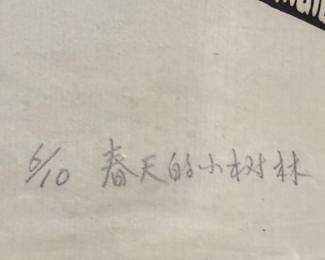 6/10 春天的小树林